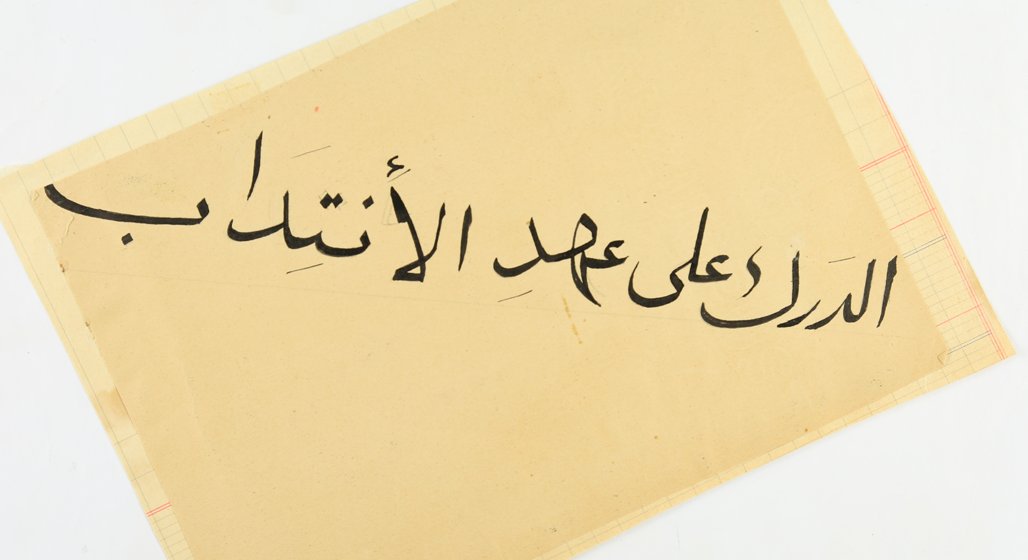 الدَرك على عهدِ الأنتِدَاب